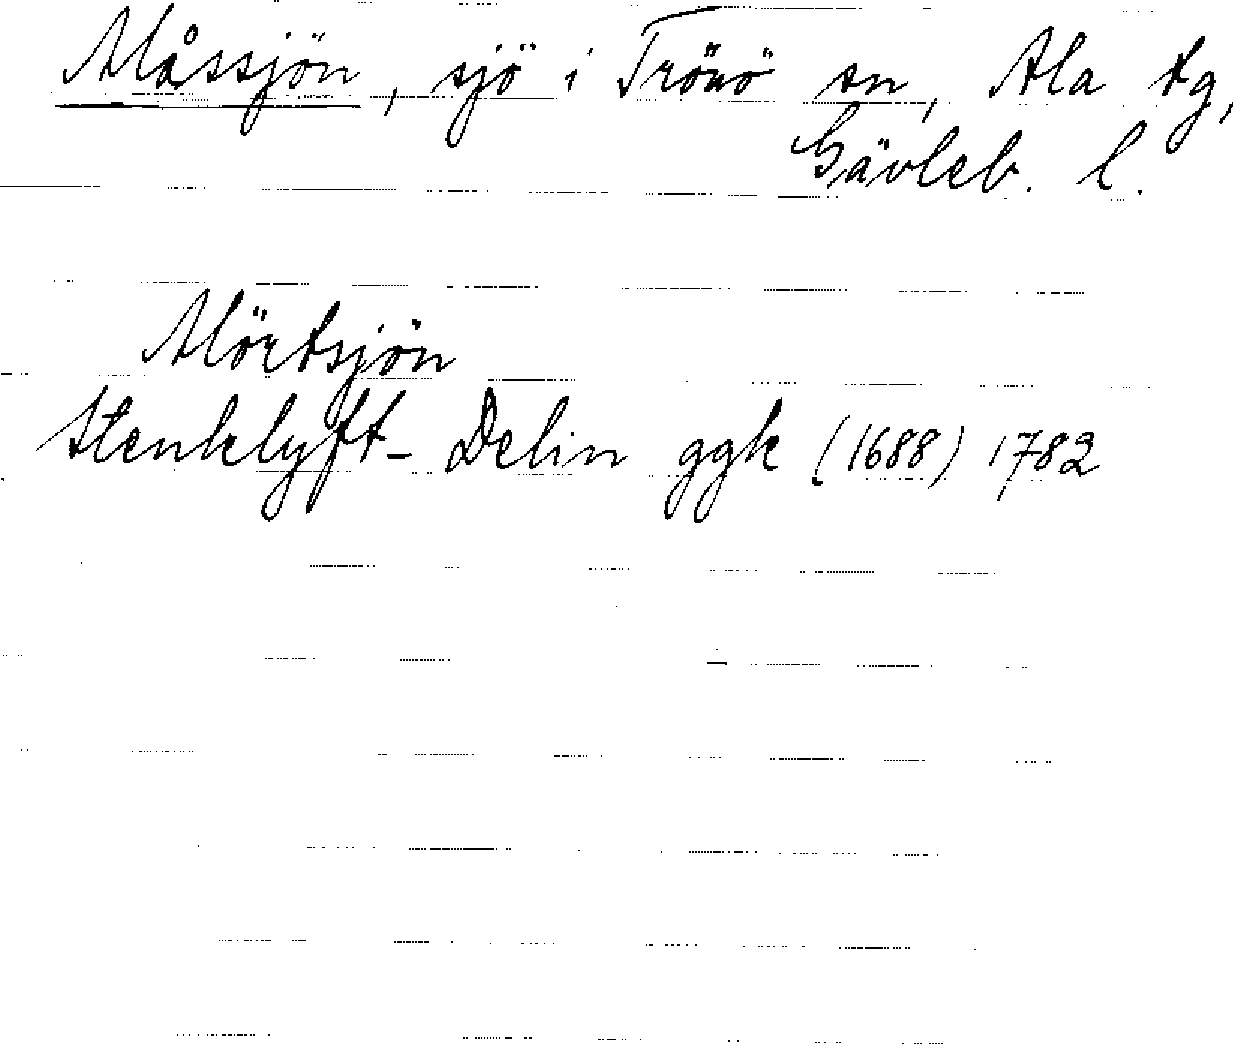 Måssjön, sjö i Trönö sn, Ala tg,
Gävleb. l.
Mörtsjön
Stenklyft- Delin ggk (1688) 1782